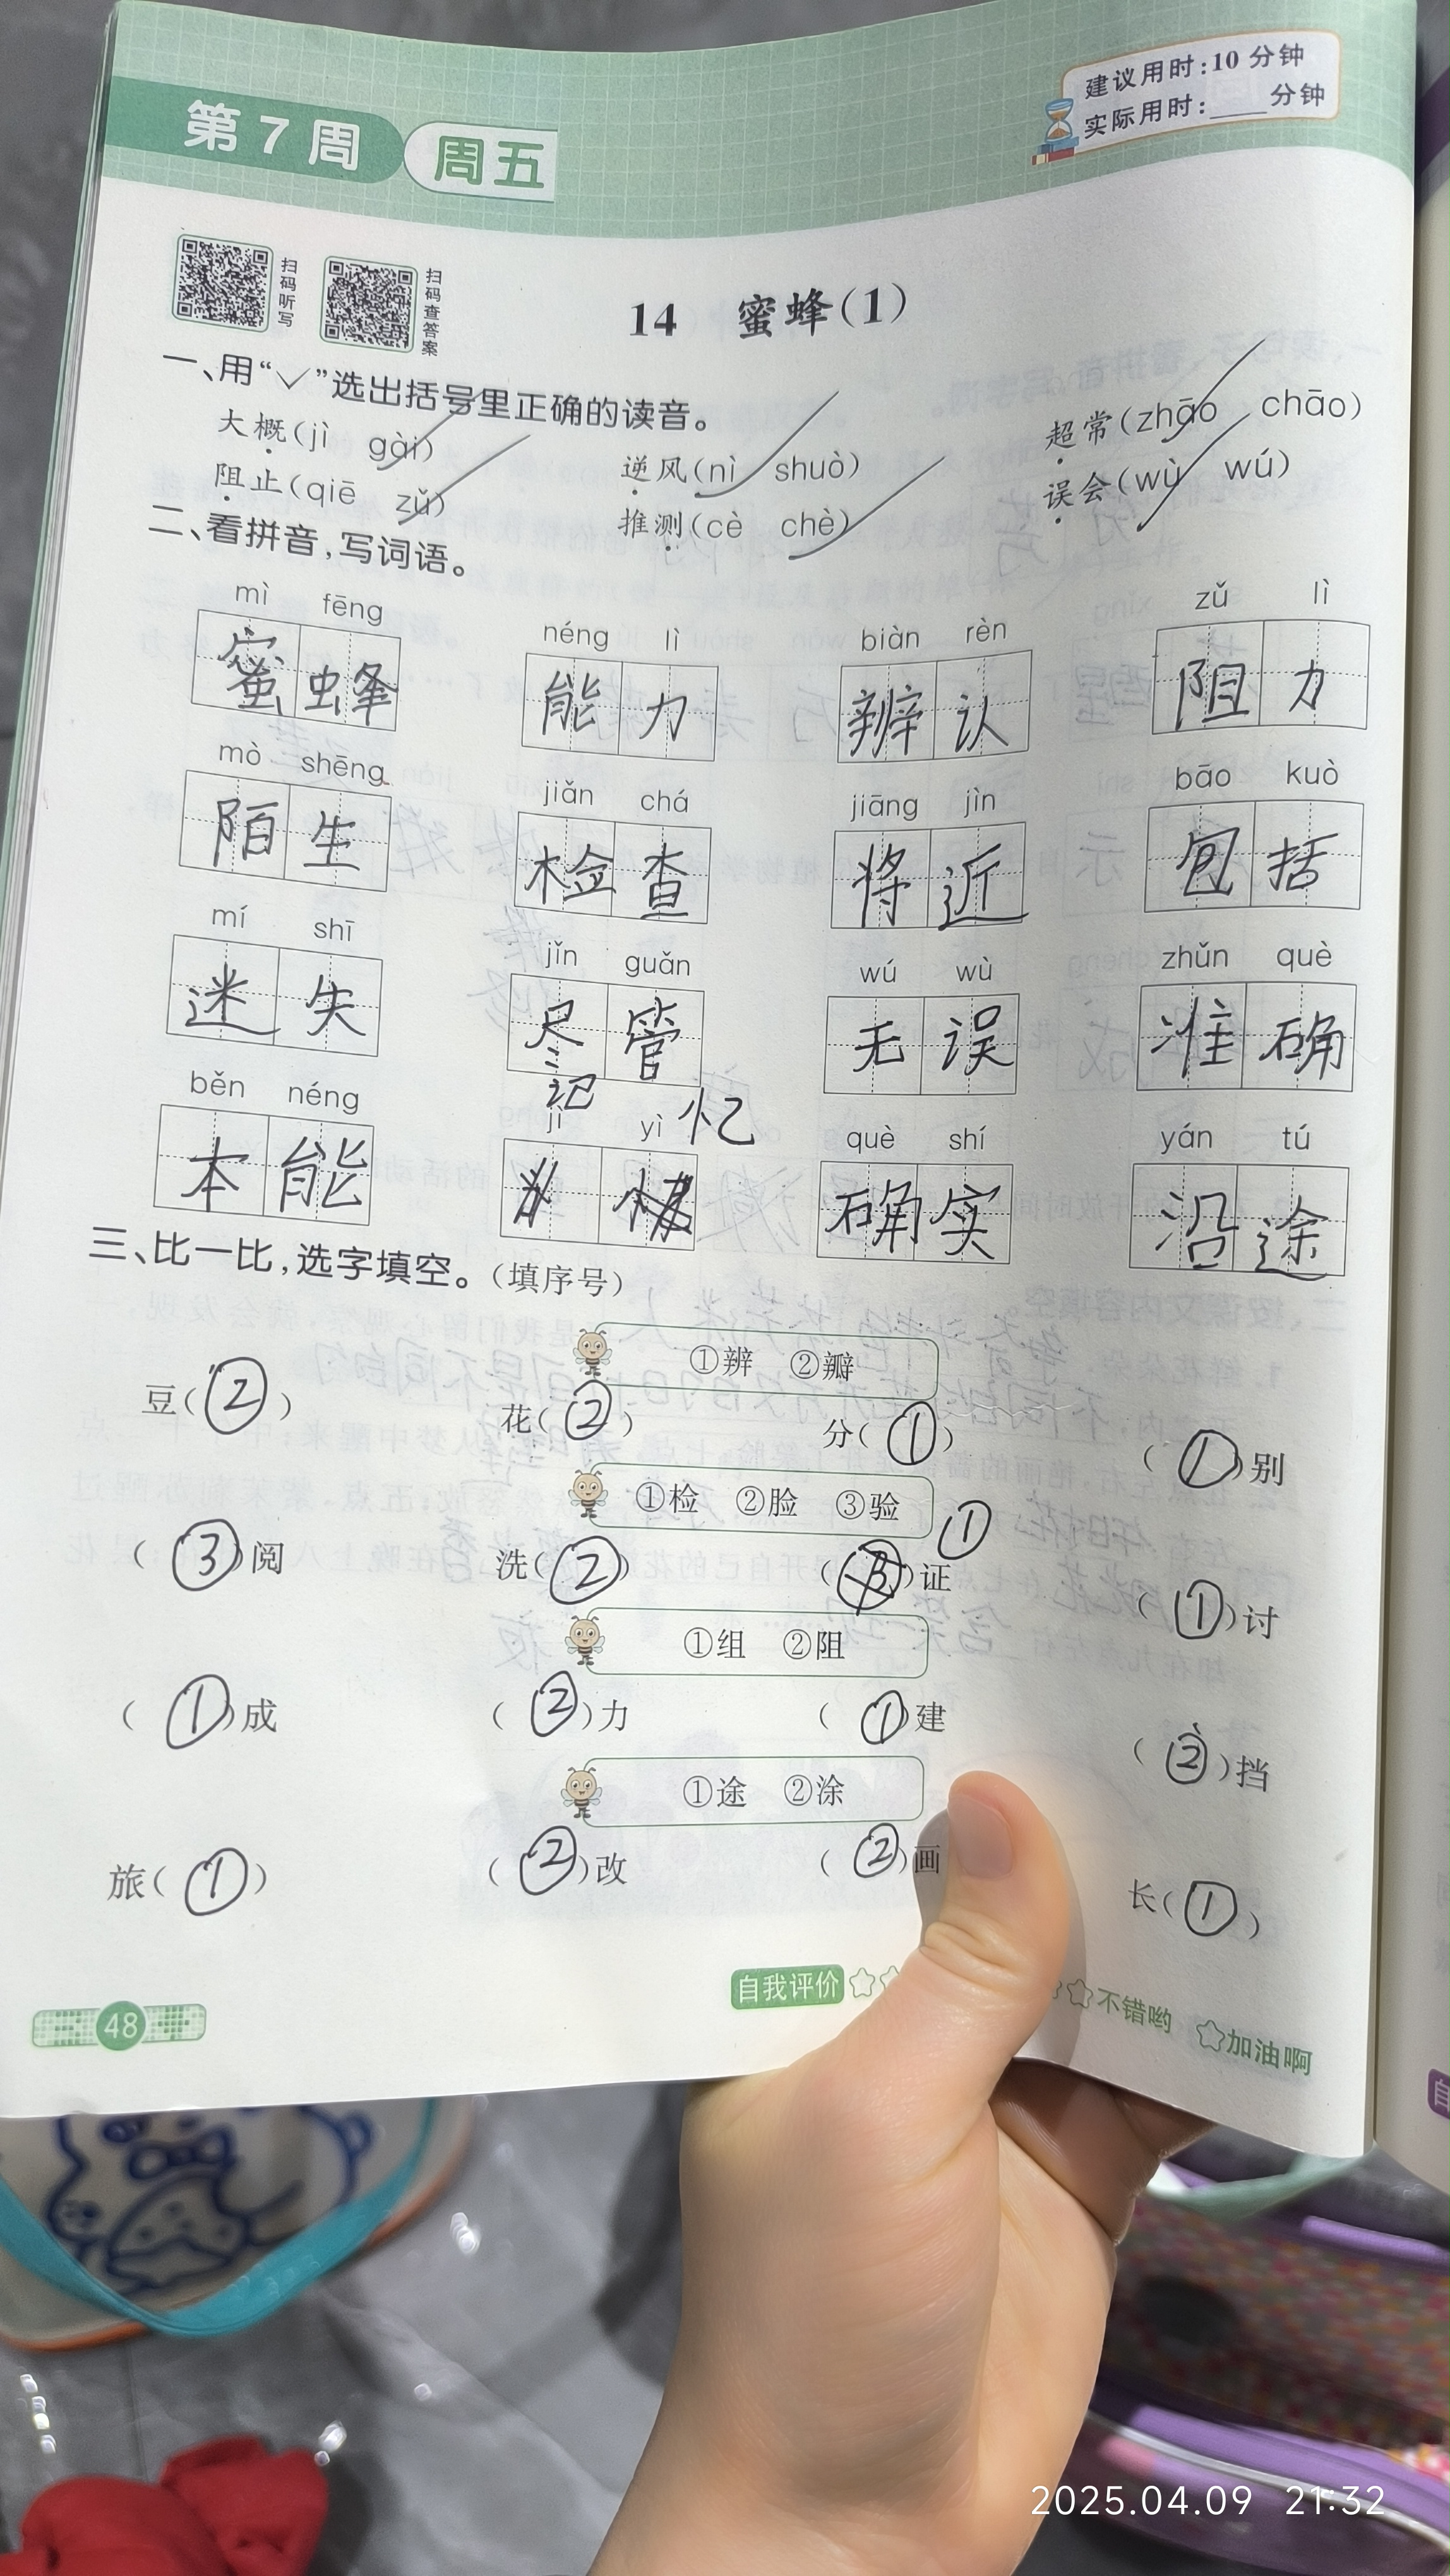 建议用时:10 分钟
实际用时:____分钟
第 7 周 周五
扫码听写 扫码查答案
14 蜜蜂(1)
一、用“✓”选出括号里正确的读音。
大概(jì gài) 逆风(nì shuò) 超常(zhāo chāo)
阻止(qiē zǔ) 推测(cè chè) 误会(wù wú)
二、看拼音,写词语。
mì fēng néng lì biàn rèn zǔ lì
蜜蜂 能力 辨认 阻力
mò shēng jiǎn chá jiāng jìn bāo kuò
陌生 检查 将近 包括
mí shī jǐn guǎn wú wù zhǔn què
迷失 尽管 无误 准确
记 忆
běn néng jì yì què shí yán tú
本能 确实 沿途
三、比一比,选字填空。(填序号)
①辨 ②瓣
豆(②) 花(②) 分(①) (①)别
①检 ②脸 ③验
①
(③)阅 洗(②) (③)证 (①)讨
①组 ②阻
(①)成 (②)力 (①)建 (②)挡
①途 ②涂
旅(①) (②)改 (②)画 长(①)
自我评价 ☆☆ ☆☆不错哟 ☆加油啊
48
2025.04.09 21:32